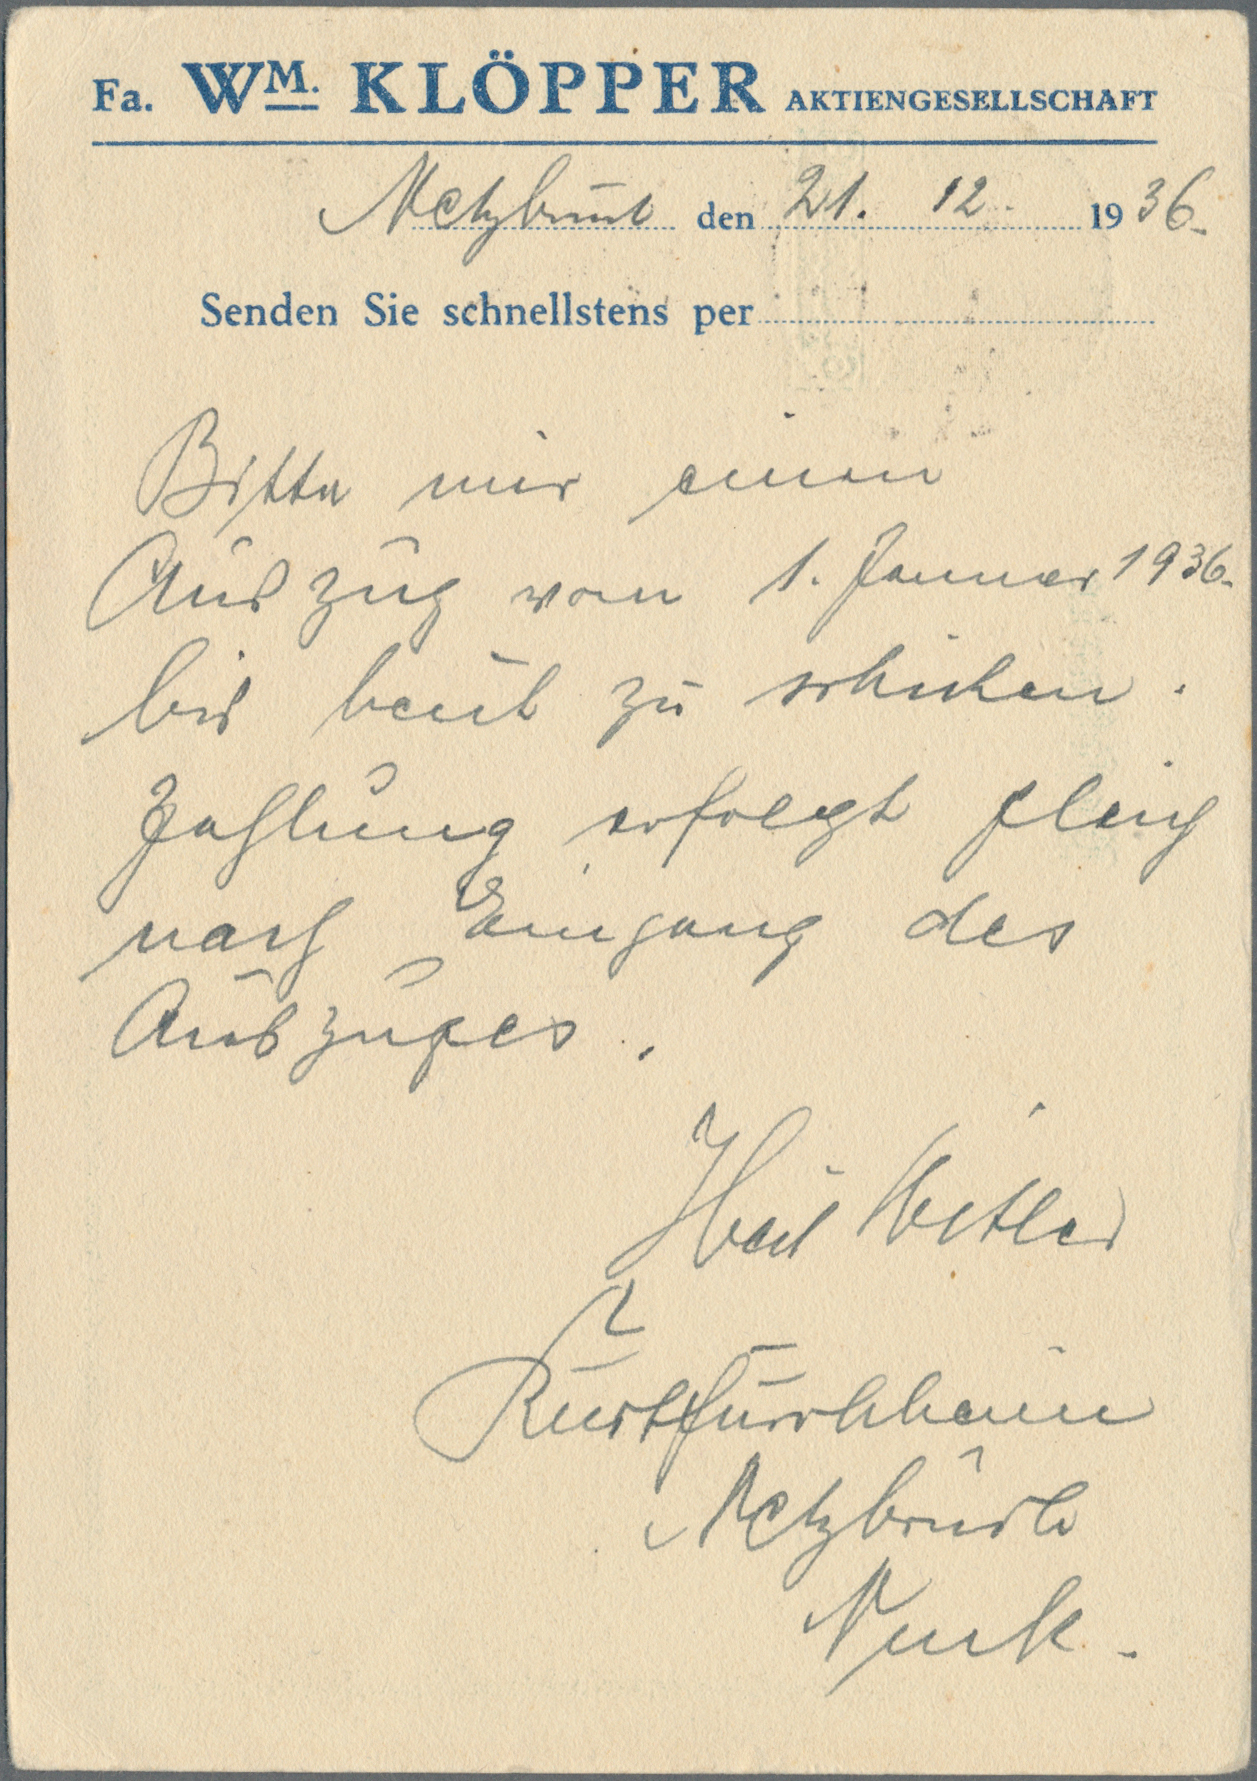 Fa. WM. KLÖPPER AKTIENGESELLSCHAFT
Netzbruch den 21. 12. 1936.
Senden Sie schnellstens per
Bitte mir einen
Auszug vom 1. Januar 1936.
bis heut zu schicken.
Zahlung erfolgt gleich
nach Eingang des
Auszuges.
Heil Hitler
Netzbruch